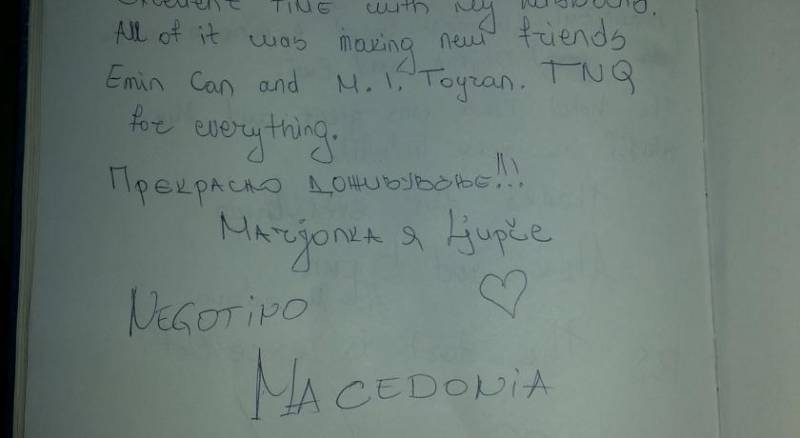 Excellent TIME with my husband.
All of it was making new friends
Emin Can and M. I. Toyran. TNQ
for everything.
Прекрасно доживување!!!
Marjonka я Ljupče
NEGOTINO
MACEDONIA